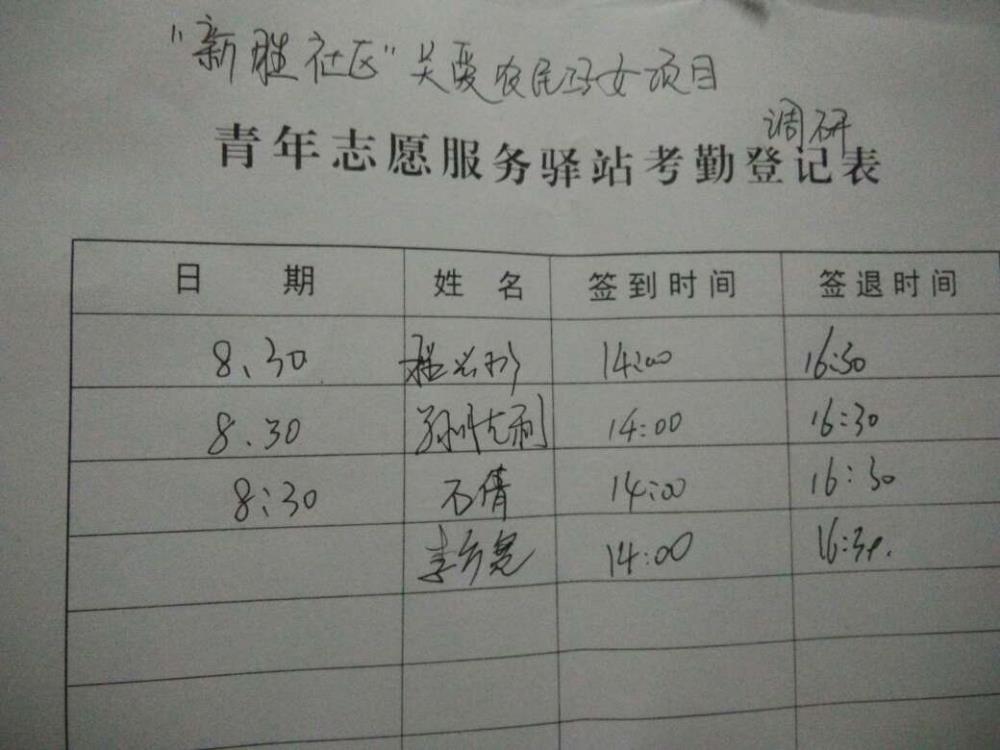 "新胜社区"关爱农民子女项目
调研
青年志愿服务驿站考勤登记表
日 期 姓 名 签到时间 签退时间
8、30 14:00 16:30
8.30 14:00 16:30
8:30 石倩 14:00 16:30
李 14:00 16:30.